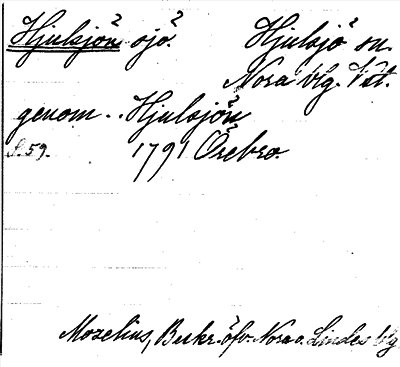 Hjulsjön sjö. Hjulsjö sn.
Nora blg. Vstl.
genom .. Hjulsjön
S. 59. 1791 Örebro.
Mozelius, Beskr. öfv. Nora o. Lindes blg